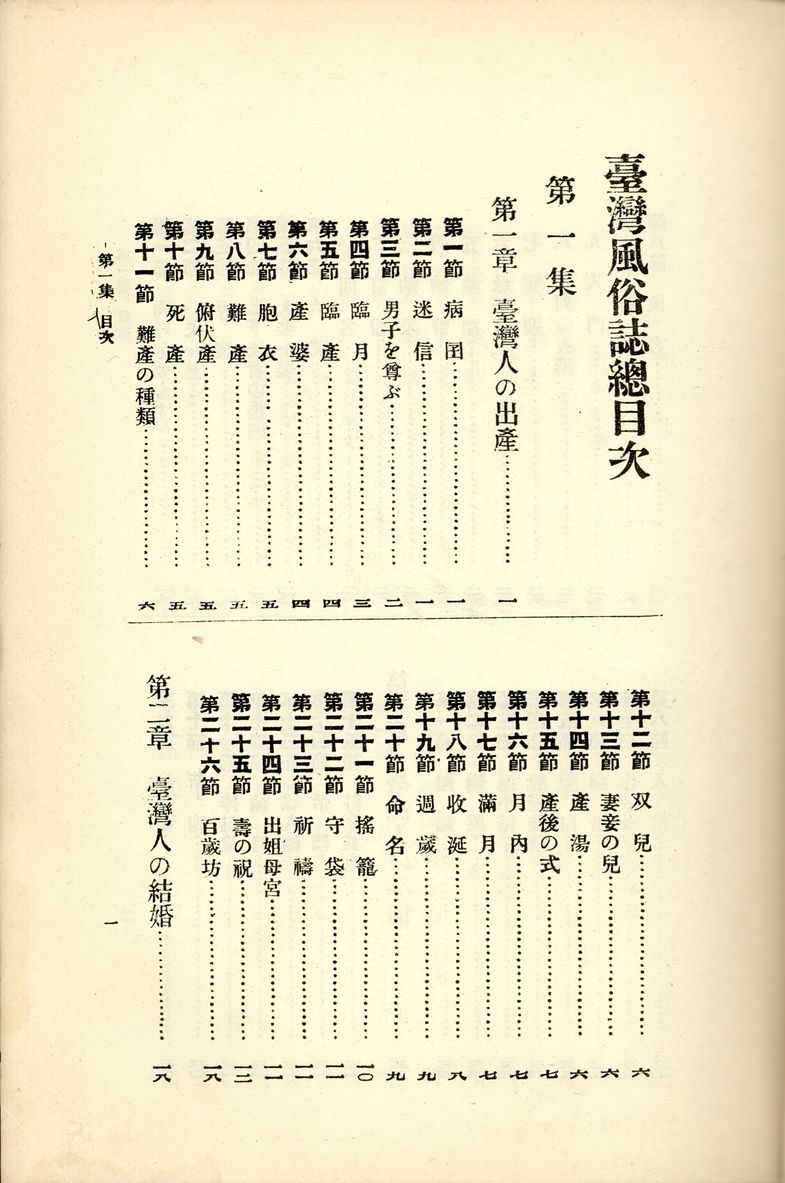 臺灣風俗誌總目次
第一集
第一章 臺灣人の出產…………一
第一節 病囝…………一
第二節 迷信…………一
第三節 男子を尊ぶ…………二
第四節 臨月…………三
第五節 臨產…………四
第六節 產婆…………四
第七節 胞衣…………五
第八節 難產…………五
第九節 俯伏產…………五
第十節 死產…………五
第十一節 難產の種類…………六
第十二節 双兒…………六
第十三節 妻妾の兒…………六
第十四節 產湯…………六
第十五節 產後の式…………七
第十六節 月內…………七
第十七節 滿月…………七
第十八節 收涎…………八
第十九節 週歲…………九
第二十節 命名…………九
第二十一節 搖籠…………一〇
第二十二節 守袋…………一一
第二十三節 祈禱…………一一
第二十四節 出姐母宮…………一一
第二十五節 壽の祝…………一三
第二十六節 百歲坊…………一八
第二章 臺灣人の結婚…………一八
第一集 目次
一